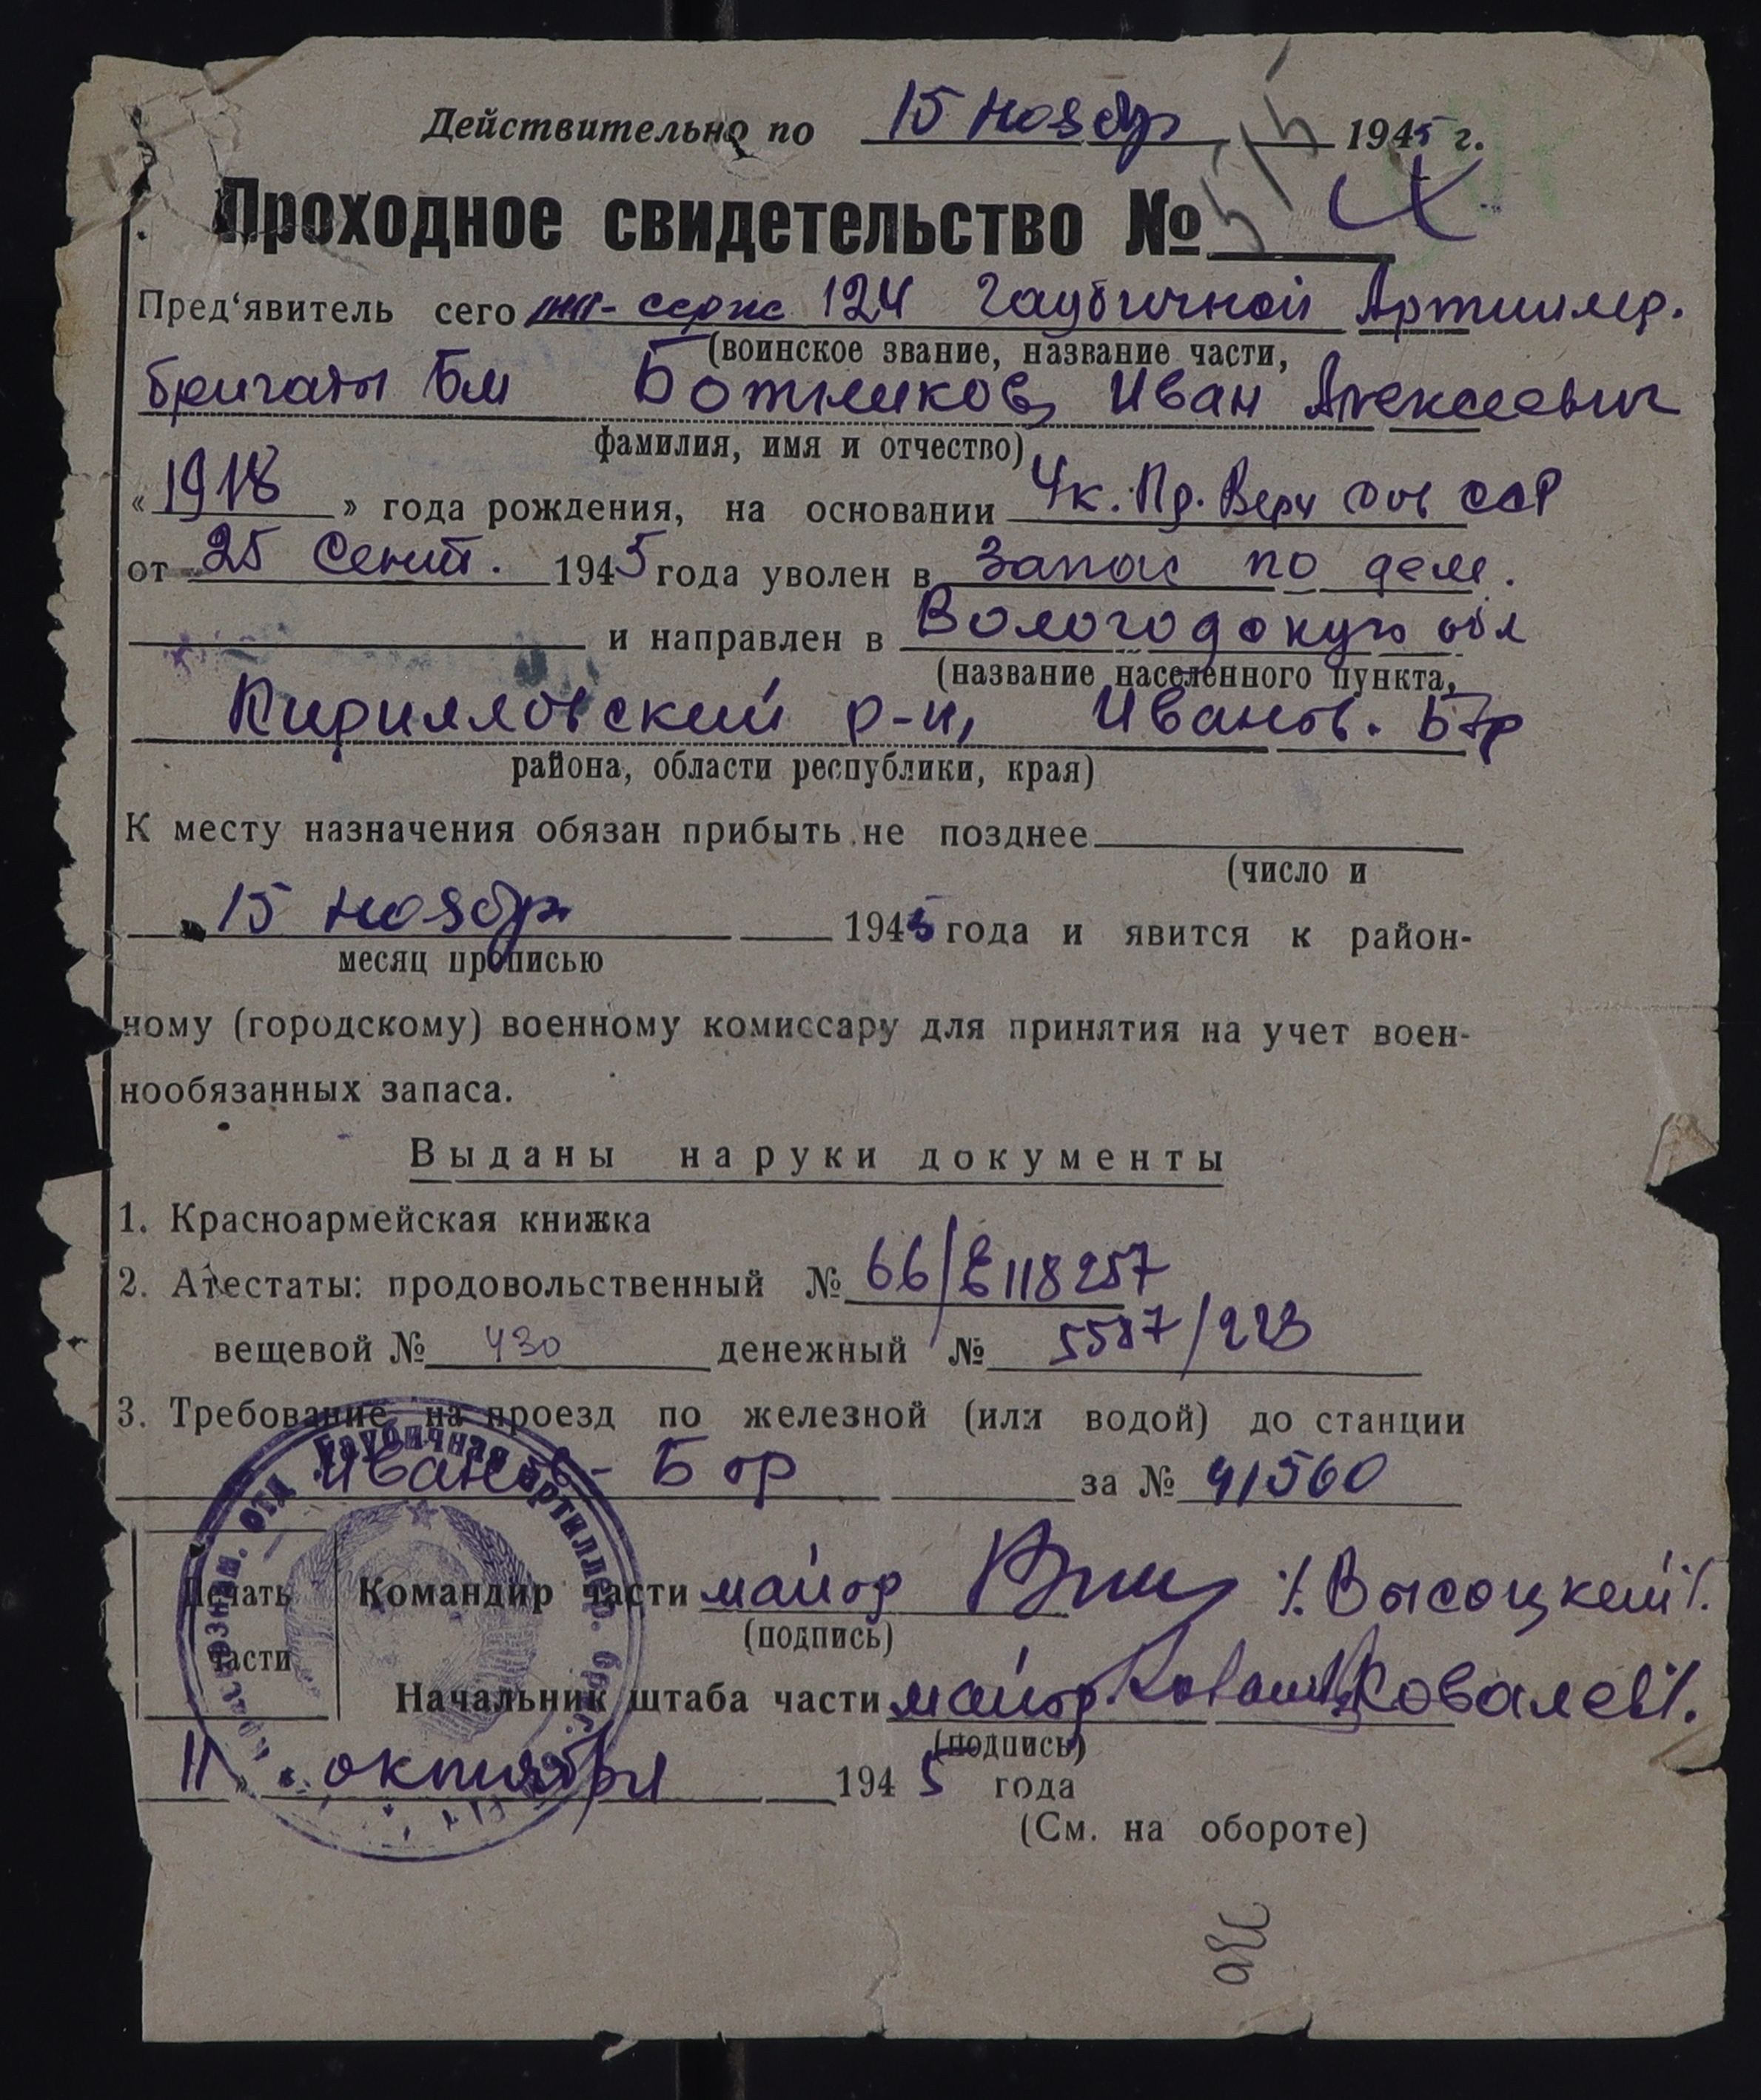 Действительно по 15 ноябр 1945 г.
Проходное свидетельство №
Пред'явитель сего мл-серж 124 Гаубичной Артиллер.
(воинское звание, название части,
бригады БМ Ботников, Иван Алексеевич
фамилия, имя и отчество)
«1918» года рождения, на основании Ук. Пр. Верх Сов ССР
от 25 Сент. 1945 года уволен в запас по дем.
и направлен в Вологодскую обл
(название населенного пункта,
Кирилловский р-н, Иванов. Бор
района, области республики, края)
К месту назначения обязан прибыть не позднее
(число и
15 ноябр 1945 года и явится к район-
месяц прописью
ному (городскому) военному комиссару для принятия на учет воен-
нообязанных запаса.
Выданы наруки документы
1. Красноармейская книжка
2. Атестаты: продовольственный № 66/Е118257
вещевой № 430 денежный № 5587/223
3. Требование на проезд по железной (или водой) до станции
Иванов-Бор за № 41560
Печать части
Командир части майор /Высоцкий/.
(подпись)
Начальник штаба части майор Ковалев/.
(подпись)
11 октября 1945 года
(См. на обороте)
Гаубичная артиллер.